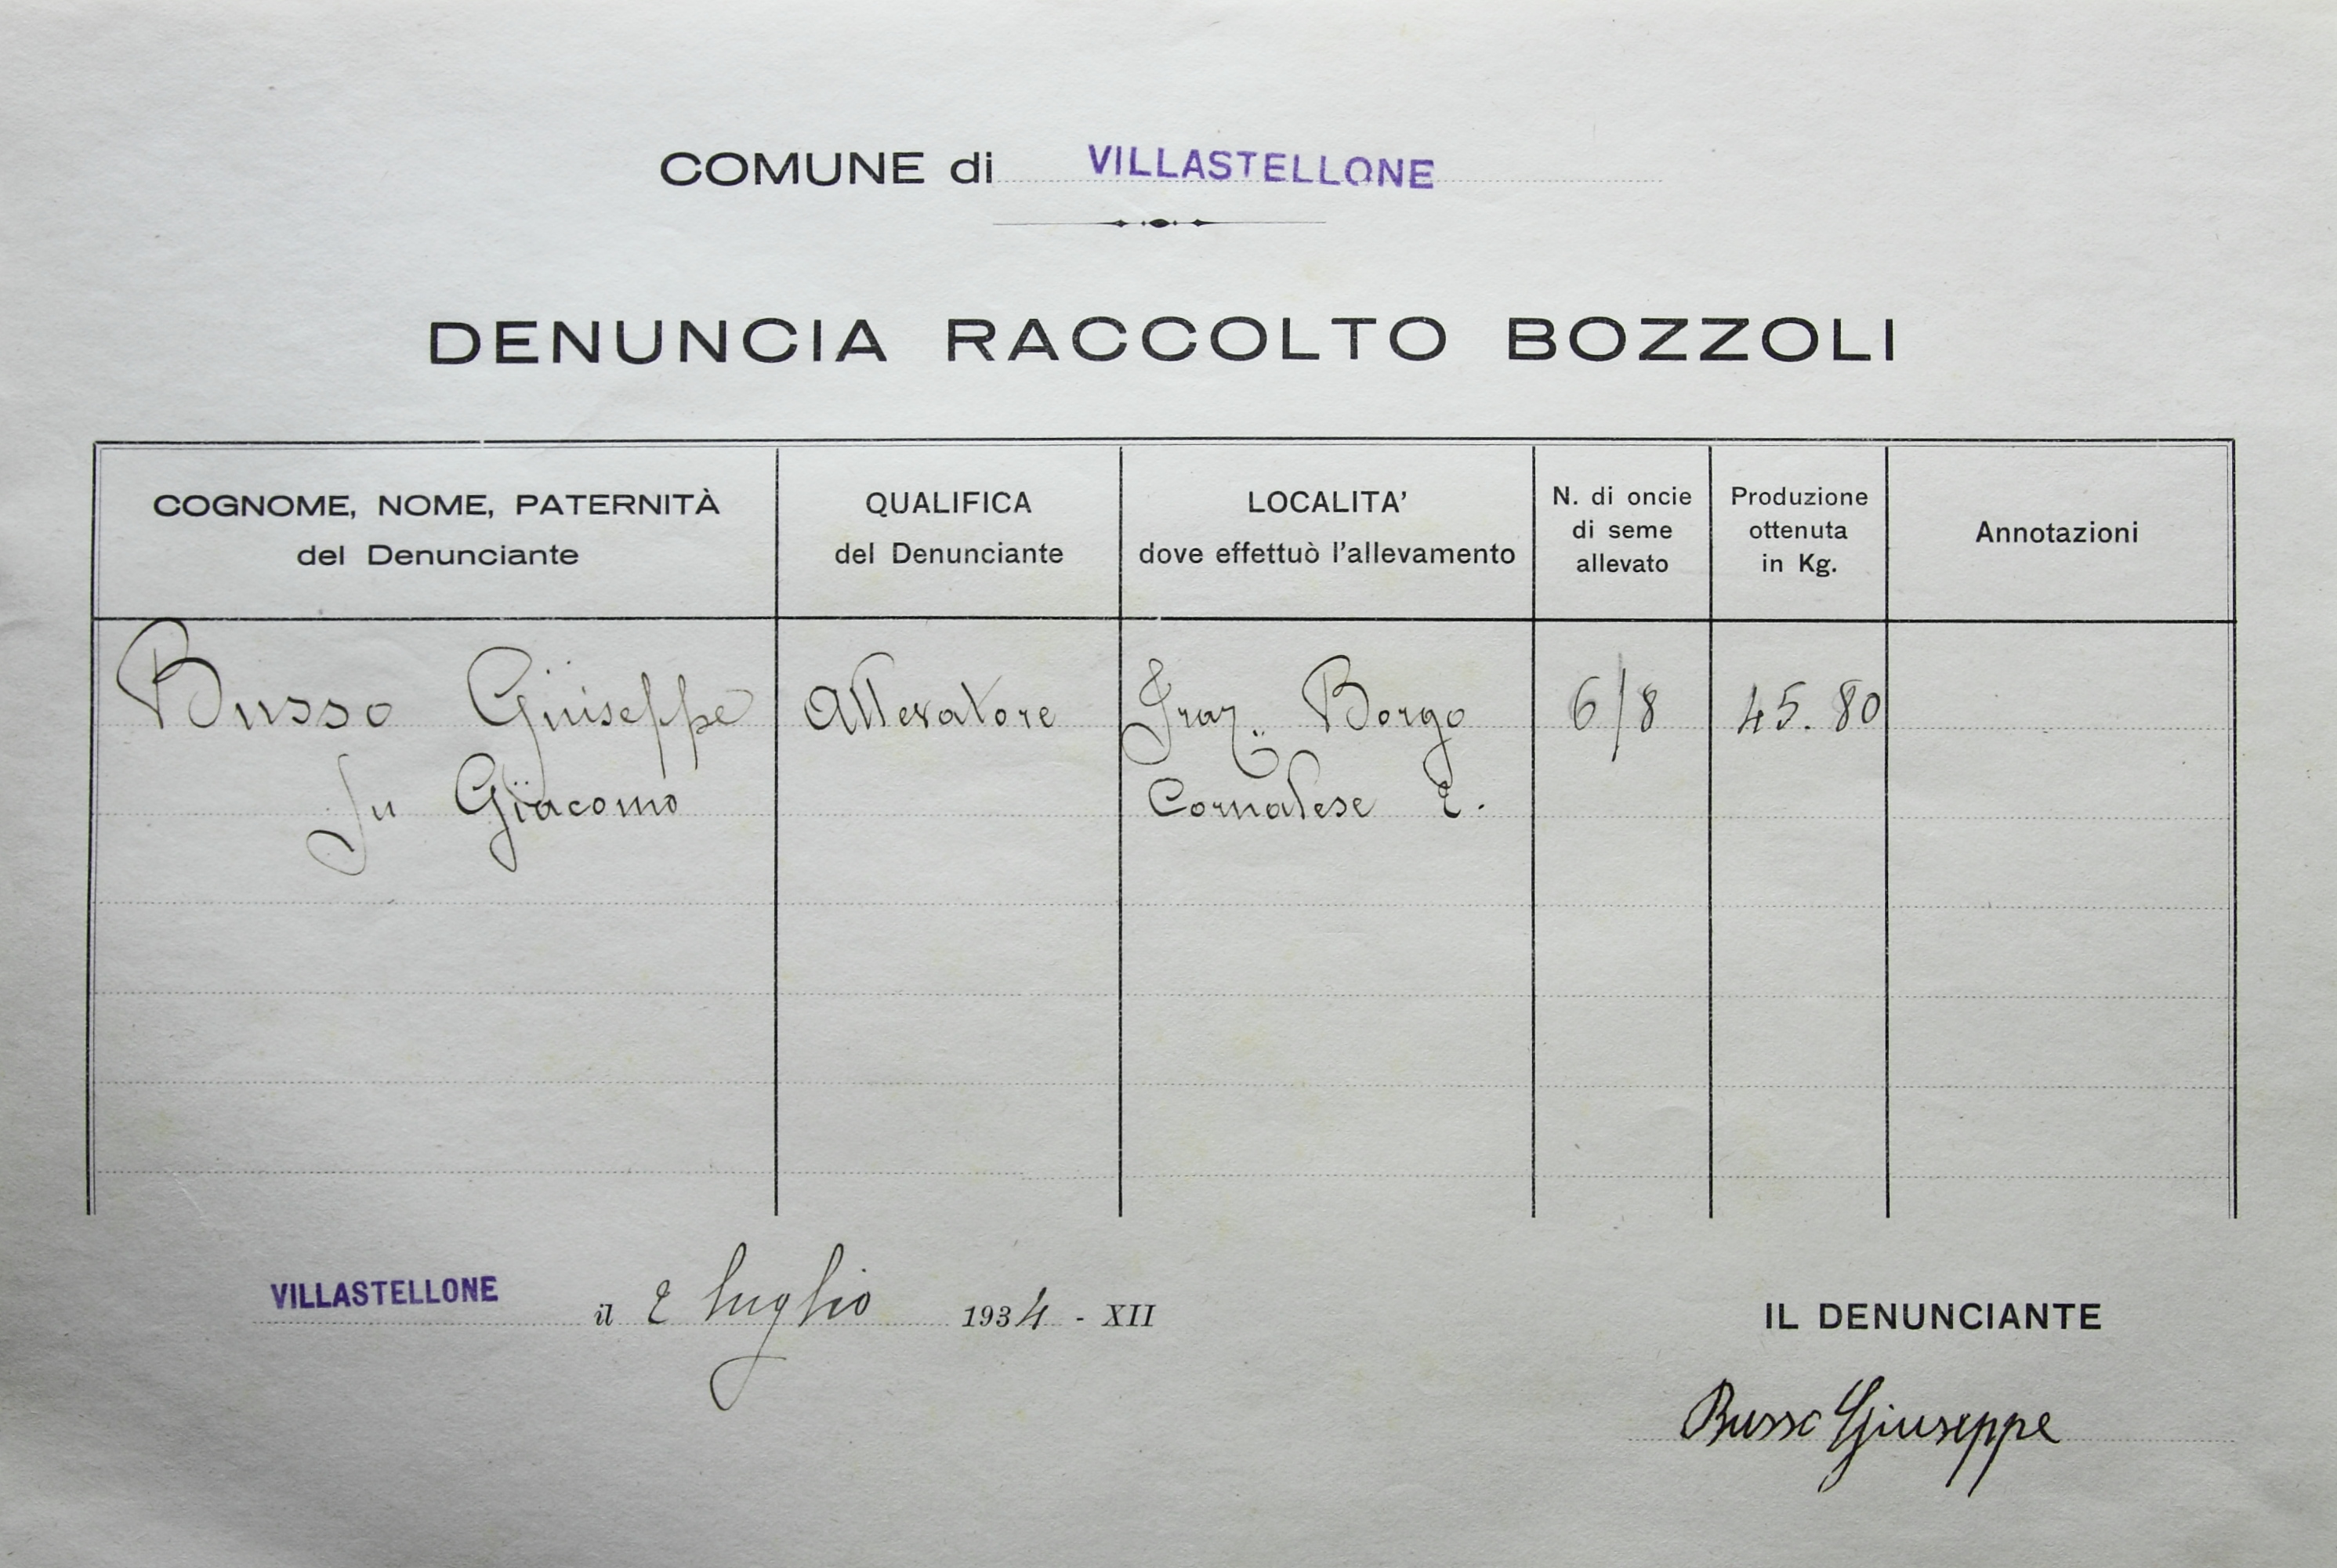 COMUNE di VILLASTELLONE
DENUNCIA RACCOLTO BOZZOLI
COGNOME, NOME, PATERNITÀ
del Denunciante
QUALIFICA
del Denunciante
LOCALITA'
dove effettuò l'allevamento
N. di oncie
di seme
allevato
Produzione
ottenuta
in Kg.
Annotazioni
Busso Giuseppe Allevatore Fraz. Borgo 6/8 45.80
fu Giacomo Cornalese 2.
VILLASTELLONE il 2 luglio 1934 - XII
IL DENUNCIANTE
Busso Giuseppe